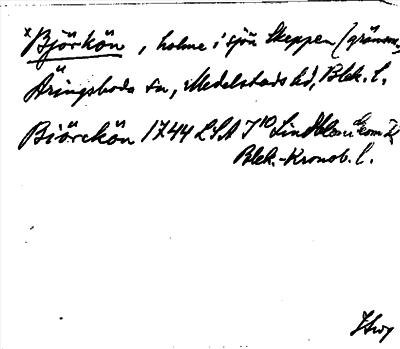 x Björkön, holme i sjön Skeppen (gränsen)
Åringsboda sn, Medelstads hd, Blek. l.
Biörckön 1744 LSA J10 Lindblom
Blek.-Kronob. l.